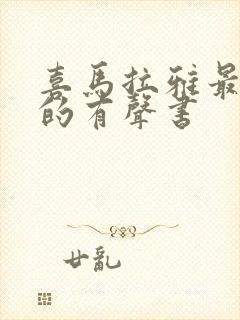 喜馬拉雅最
的有聲書
廿亂